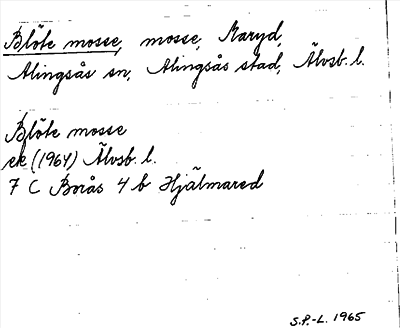 Blöte mosse, mosse, Maryd,
Alingsås sn, Alingsås stad, Älvsb. l.
Blöte mosse
ek (1964) Älvsb. l.
7 C Borås 4 b Hjälmared
S.P.-L. 1965